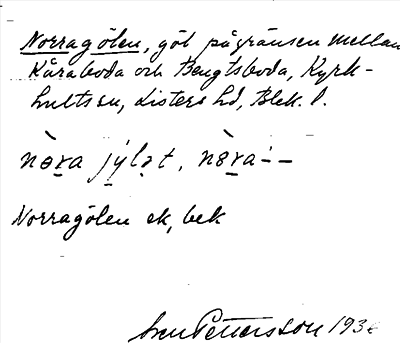 Norragölen, göl på gränsen mellan
Kåraboda och Bengtsboda, Kyrk-
hults sn, Listers hd, Blek. l.
nò̱ra jý̱lət, nò̱ra – –
Norragölen ek, bek
Pettersson 193